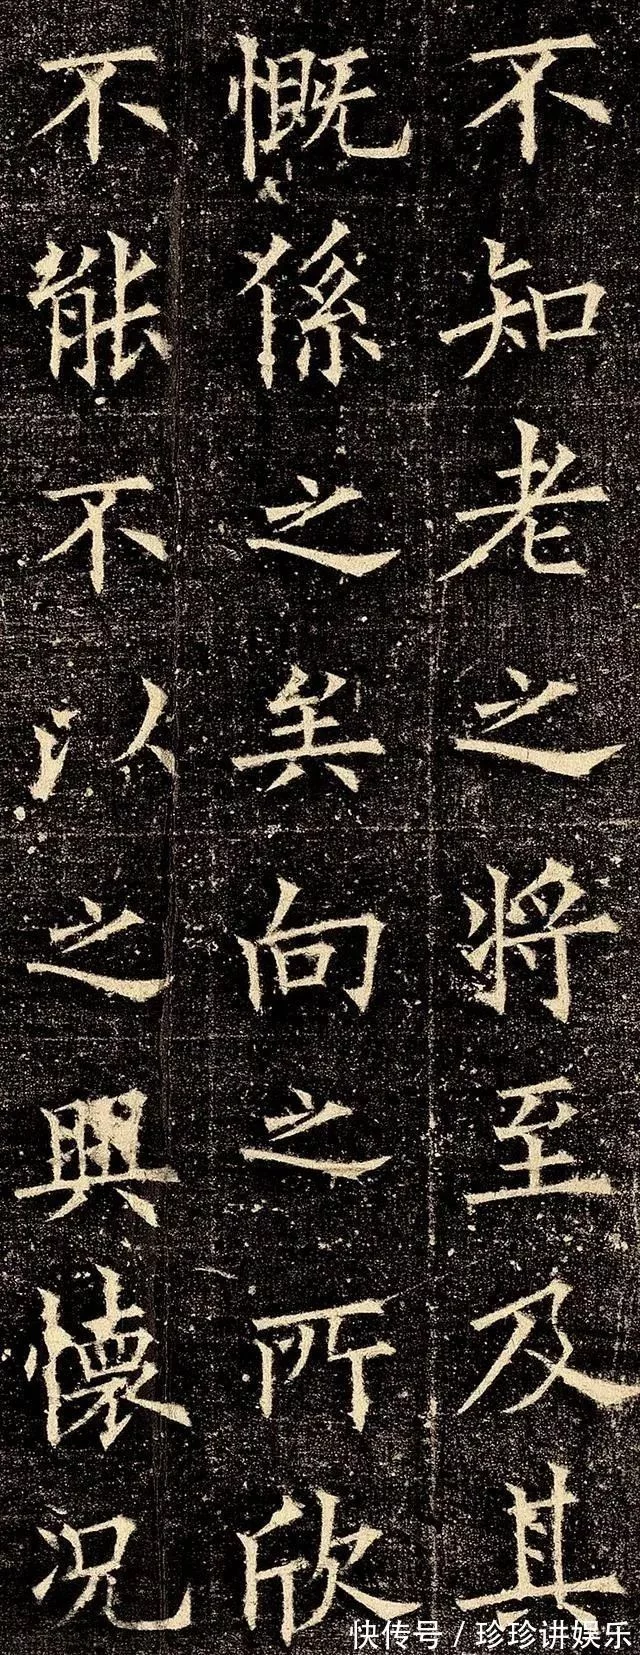 不知老之將至及其
慨係之矣向之所欣
不能不以之興懷况
快传号/珍珍讲娱乐